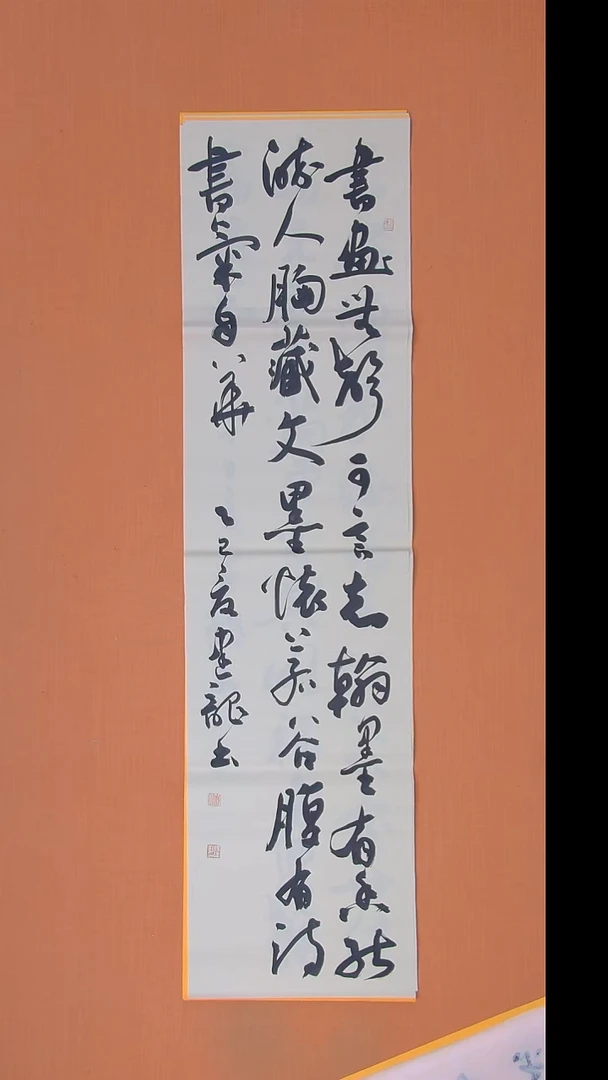 書畫無聲可言志翰墨有香能
人胸藏文墨懷若谷腹有詩
書氣自華
乙巳夏建龍書